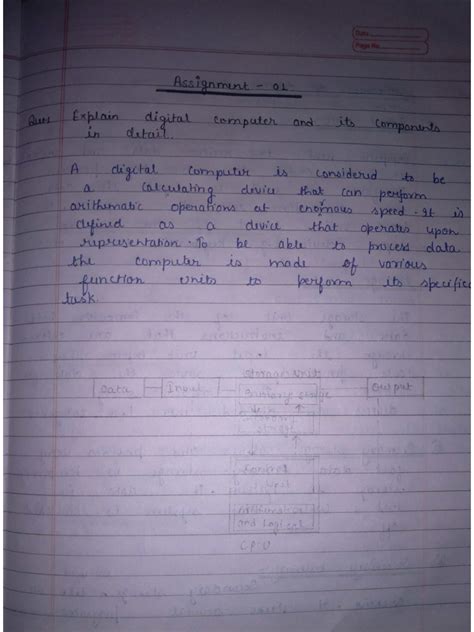 Date
Page No.
Assignment - 01
Ques Explain digital computer and its components
in detail.
A digital computer is considered to be
a calculating device that can perform
arithematic operations at enormous speed. It is
defined as a device that operates upon
representation. To be able to process data
the computer is made of various
function units to perform its specific
task.
Storage Unit
Data Input Output
Control
Unit
and Logical
C.P.U